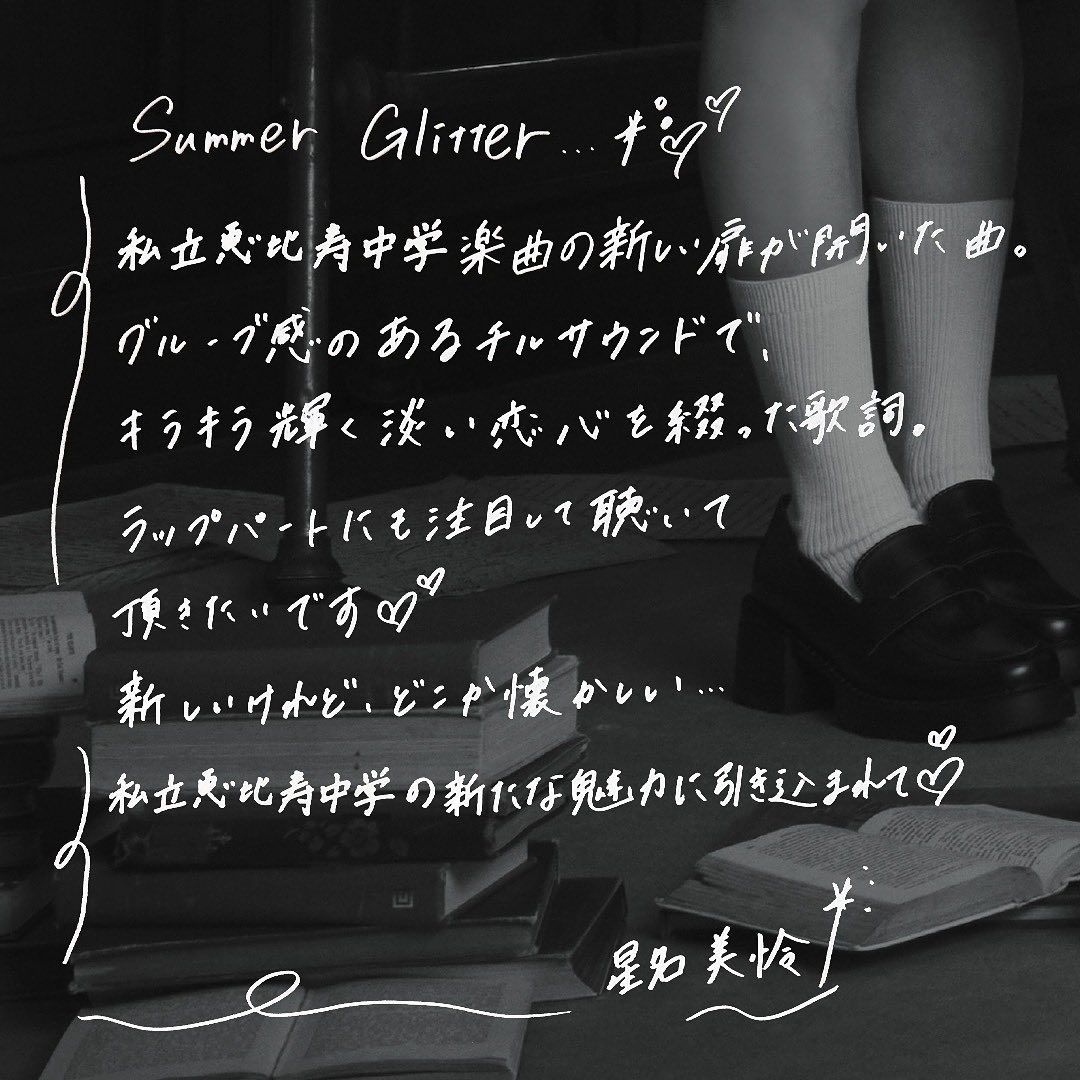 Summer Glitter...
私立恵比寿中学楽曲の新しい扉が開いた曲。
グルーブ感のあるチルサウンドで、
キラキラ輝く淡い恋心を綴った歌詞。
ラップパートにも注目して聴いて
頂きたいです♡♡
新しいけれど、どこか懐かしい…
私立恵比寿中学の新たな魅力に引き込まれて♡♡
星名美怜